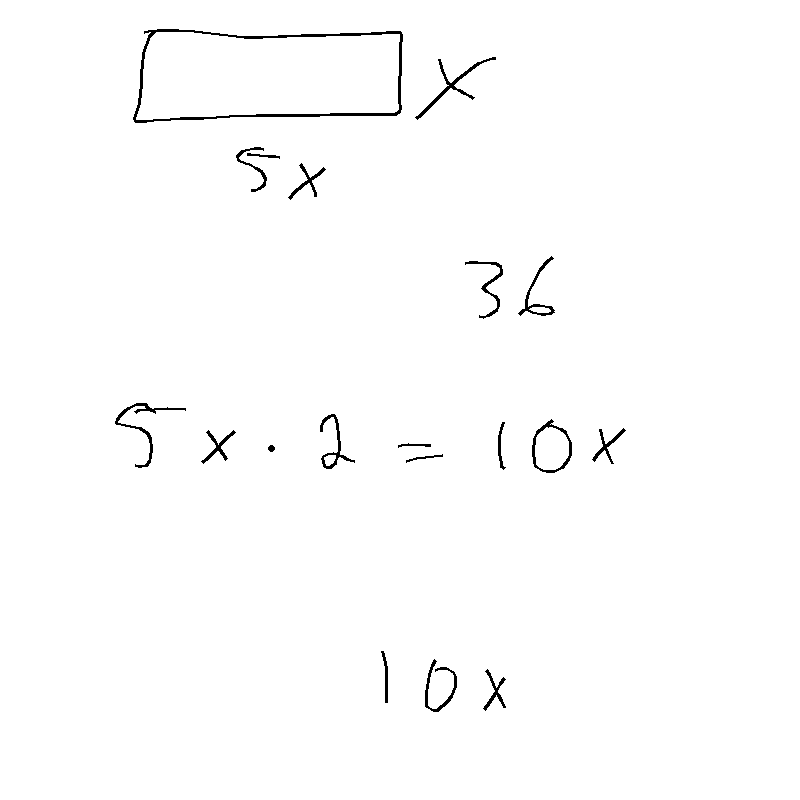 x
5x
36
5x · 2 = 10x
10x